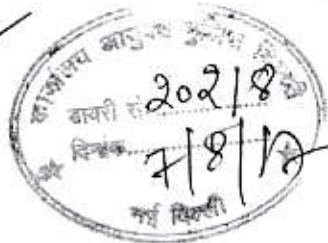 कार्यालय आयुक्त
डायरी सं. 202/8
दिनांक 7/8/12
नई दिल्ली